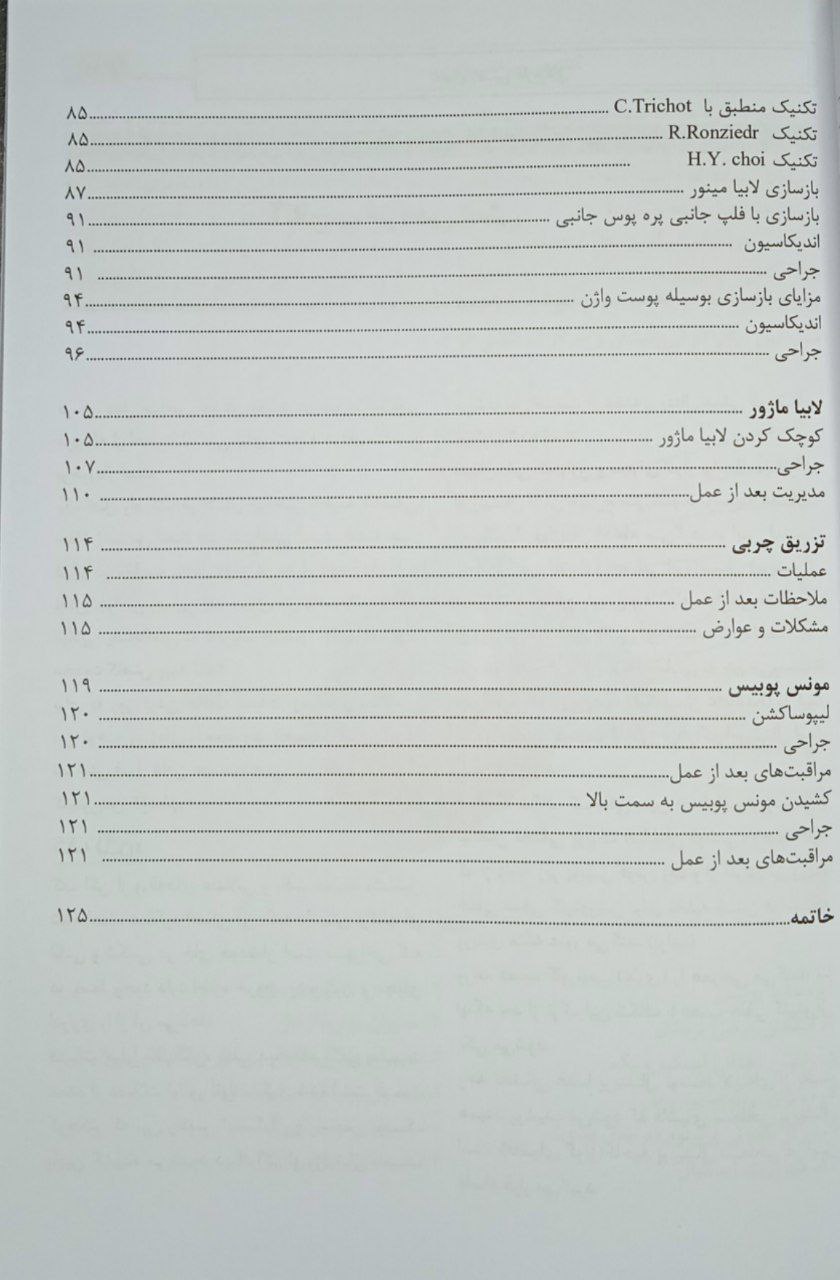 تکنیک منطبق با C.Trichot ........ ۸۵
تکنیک R.Ronziedr ........ ۸۵
تکنیک H.Y. choi ........ ۸۵
بازسازی لابیا مینور ........ ۸۷
بازسازی با فلپ جانبی پره پوس جانبی ........ ۹۱
اندیکاسیون ........ ۹۱
جراحی ........ ۹۱
مزایای بازسازی بوسیله پوست واژن ........ ۹۴
اندیکاسیون ........ ۹۴
جراحی ........ ۹۶
لابیا ماژور ........ ۱۰۵
کوچک کردن لابیا ماژور ........ ۱۰۵
جراحی ........ ۱۰۷
مدیریت بعد از عمل ........ ۱۱۰
تزریق چربی ........ ۱۱۴
عملیات ........ ۱۱۴
ملاحظات بعد از عمل ........ ۱۱۵
مشکلات و عوارض ........ ۱۱۵
مونس پوبیس ........ ۱۱۹
لیپوساکشن ........ ۱۲۰
جراحی ........ ۱۲۰
مراقبت‌های بعد از عمل ........ ۱۲۱
کشیدن مونس پوبیس به سمت بالا ........ ۱۲۱
جراحی ........ ۱۲۱
مراقبت‌های بعد از عمل ........ ۱۲۱
خاتمه ........ ۱۲۵